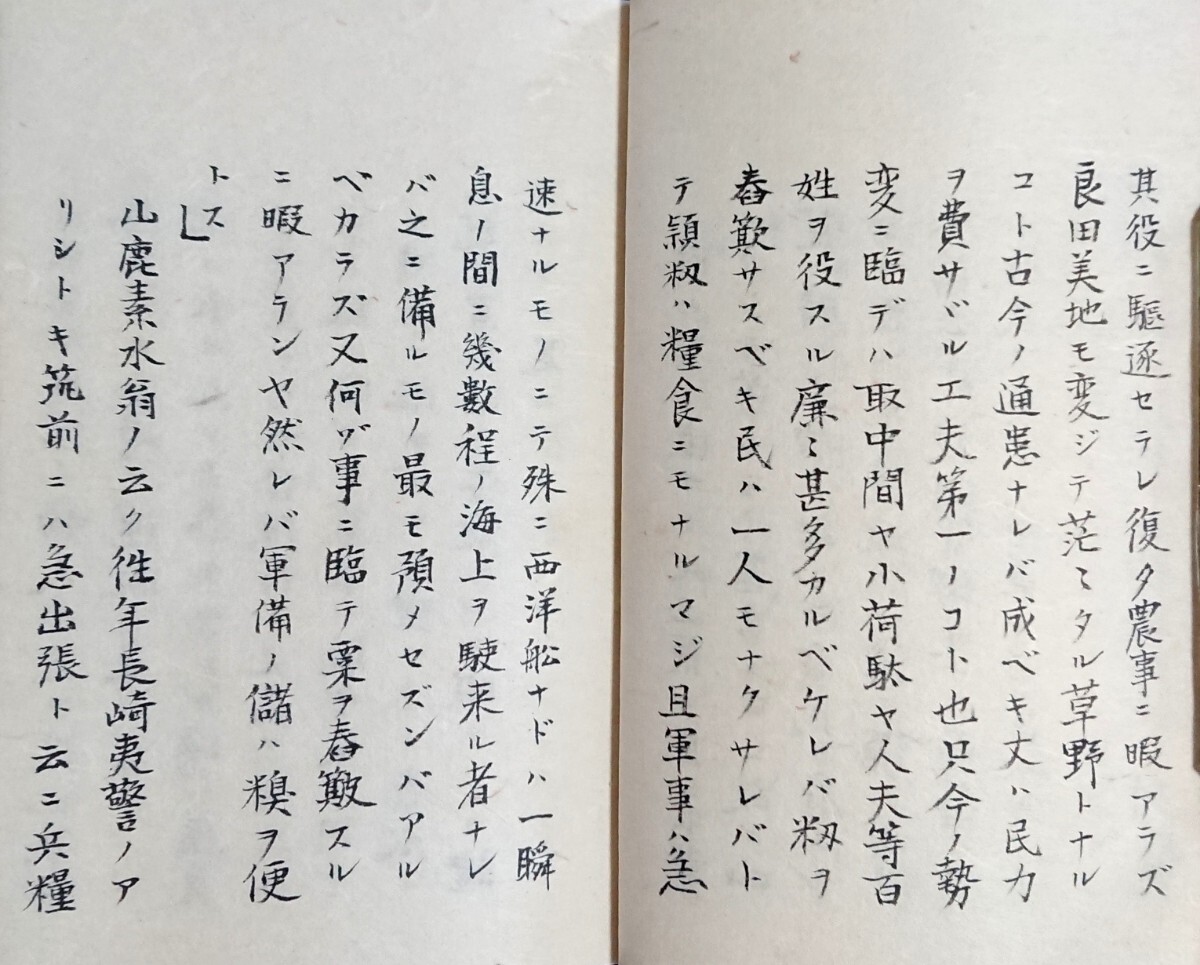 其役ニ驅逐セラレ復タ農事ニ暇アラズ
良田美地モ変ジテ茫ミタル草野トナル
コト古今ノ通患ナレバ成ベキ丈ハ民力
ヲ費サヾル工夫第一ノコト也只今ノ勢
変ニ臨デハ取中間ヤ小荷駄ヤ人夫等百
姓ヲ役スル廉ミ甚多カルベケレバ籾ヲ
舂簸サスベキ民ハ一人モナクサレバト
テ頴籾ハ糧食ニモナルマジ且軍事ハ急
速ナルモノニテ殊ニ西洋舩ナドハ一瞬
息ノ間ニ幾數程ノ海上ヲ駛来ル者ナレ
バ之ニ備ルモノ最モ預メセズンバアル
ベカラズ又何ゾ事ニ臨テ粟ヲ舂簸スル
ニ暇アランヤ然レバ軍備ノ儲ハ糗ヲ便
トス」
山鹿素水翁ノ云ク徃年長崎夷警ノア
リシトキ筑前ニハ急出張ト云ニ兵糧